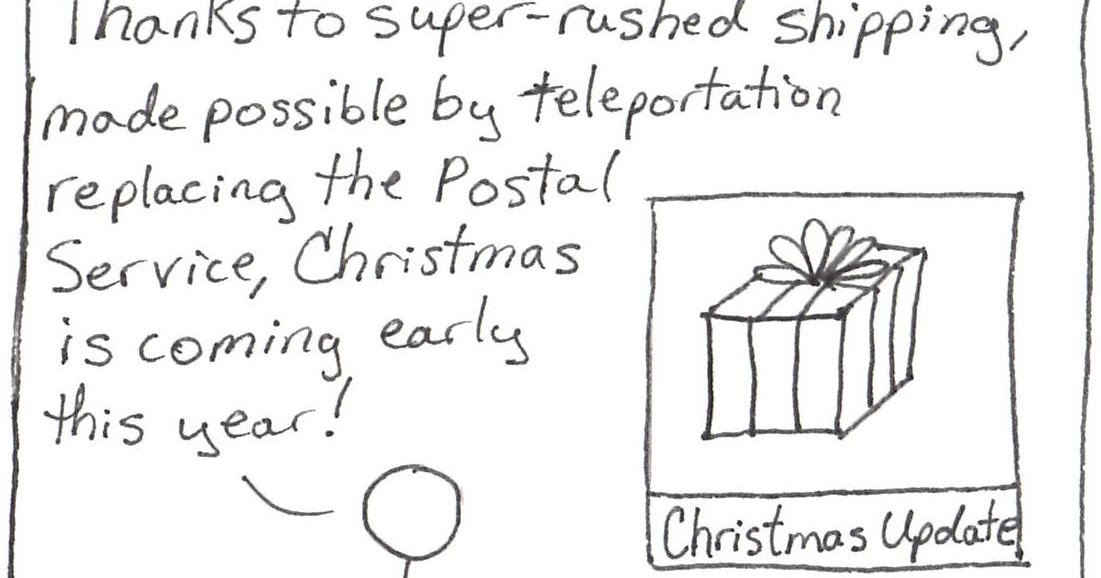 Thanks to super-rushed shipping,
made possible by teleportation
replacing the Postal
Service, Christmas
is coming early
this year!
Christmas Update